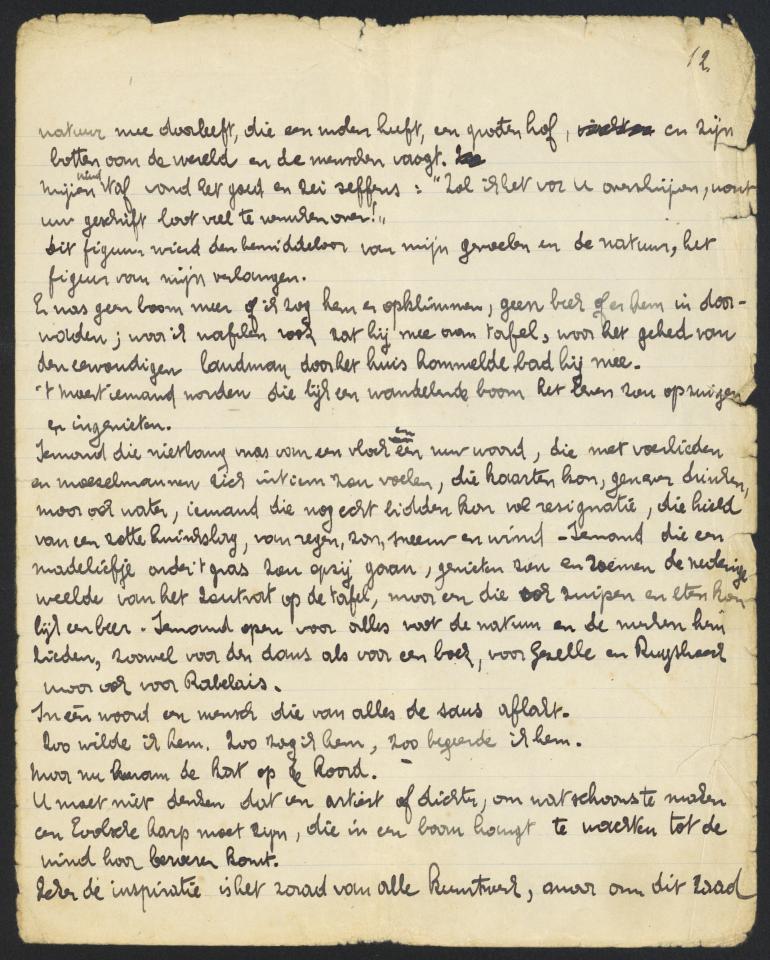 12
natuur mee doorleeft, die een molen heeft, een grooten hof, en zijn
botten aan de wereld en de menschen vaagt.
Mijn vriend Staf vond het goed en zei seffens : "Zal ik het voor U overschrijven, want
uw geschrift laat veel te wenschen over!„
Dit figuur wierd den bemiddelaar van mijn gevoelen en de natuur, het
figuur van mijn verlangen.
Er was geen boom meer of ik zag hem er opklimmen, geen beek of er hem in door-
waden ; waar ik zat hij mee aan tafel, waar het gebed van
den eenvoudigen landman door het huis hommelde bad hij mee.
't Moest iemand worden die lijk een wandelende boom het leven zou opzuigen
en ingenieten.
Iemand die niet bang was van een vloek en één uur woord, die met voerlieden
en mosselmannen zich intiem zou voelen, die kaarten kon, genever drinken,
maar ook water, iemand die nog echt bidden kon vol resignatie, die hield
van een zotte kuirslag, van regen, zon, sneeuw en wind - Iemand die een
madeliefje onder 't gras zou opzij gaan, genieten zou en roemen de nederige
weelde van het zoutvat op de tafel, maar en die ook zuipen en eten kon
lijk een beer. Iemand open voor alles wat de natuur en de menschen hem
bieden, zoowel voor den dans als voor een boek, voor Gezelle en Ruysbroeck
maar ook voor Rabelais.
In één woord een mensch die van alles de saus aflakt.
Zoo wilde ik hem. Zoo zag ik hem, zoo begeerde ik hem.
Maar nu kwam de kat op de koord.
U moet niet denken dat een artiest of dichter, om wat schoons te maken
een Eolsche harp moet zijn, die in een boom hangt te wachten tot de
wind haar beroeren komt.
Zeker de inspiratie is het zaad van alle kunstwerk, maar om dit zaad